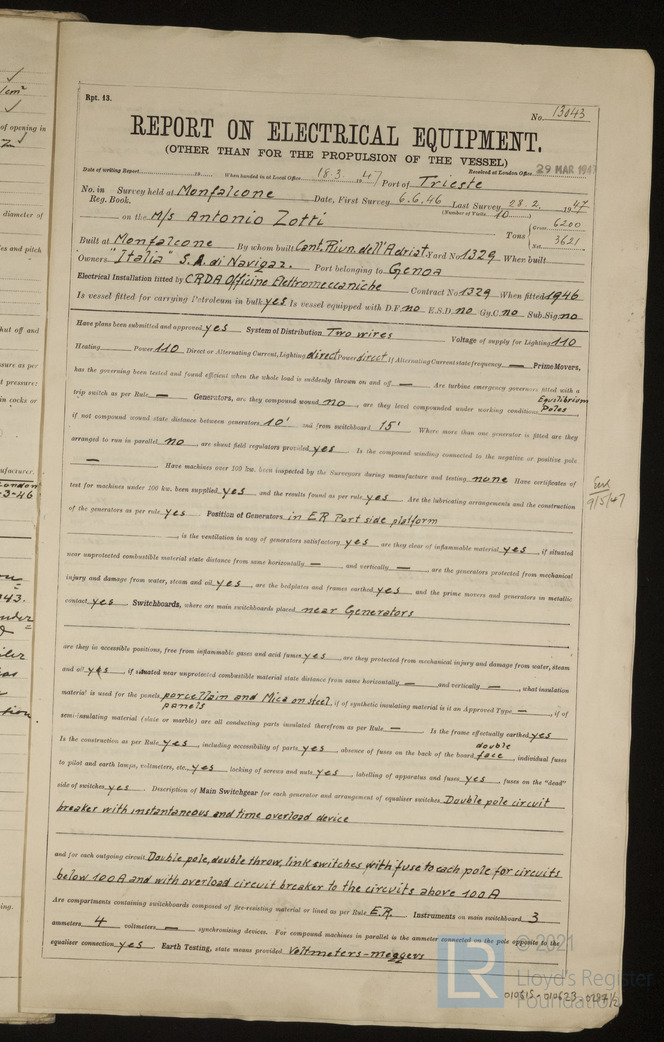 Rpt. 13.
No. 13043
REPORT ON ELECTRICAL EQUIPMENT.
(OTHER THAN FOR THE PROPULSION OF THE VESSEL)
Received at London Office 29 MAR 1947
Date of writing Report 19 When handed in at Local Office 18.3. 1947 Port of Trieste
No. in Reg. Book. Survey held at Monfalcone Date, First Survey 6.6.46 Last Survey 28.2. 1947
(Number of Visits 10)
on the M/s Antonio Zotti Tons { Gross 6200 Net 3621
Built at Monfalcone By whom built Cant. Riun. dell'Adriat. Yard No. 1329 When built
Owners "Italia" S.A. di Navigaz. Port belonging to Genoa
Electrical Installation fitted by CRDA Officine Elettromeccaniche Contract No. 1329 When fitted 1946
Is vessel fitted for carrying Petroleum in bulk yes Is vessel equipped with D.F. no E.S.D. no Gy.C. no Sub.Sig. no
Have plans been submitted and approved yes System of Distribution Two wires Voltage of supply for Lighting 110
Heating Power 110 Direct or Alternating Current, Lighting direct Power direct If Alternating Current state frequency — Prime Movers,
has the governing been tested and found efficient when the whole load is suddenly thrown on and off — Are turbine emergency governors fitted with a
trip switch as per Rule — Generators, are they compound wound no, are they level compounded under working conditions Equilibrium Poles,
if not compound wound state distance between generators 10' and from switchboard 15' Where more than one generator is fitted are they
arranged to run in parallel no, are shunt field regulators provided yes Is the compound winding connected to the negative or positive pole
— Have machines over 100 kw. been inspected by the Surveyors during manufacture and testing none Have certificates of
test for machines under 100 kw. been supplied yes and the results found as per rule yes Are the lubricating arrangements and the construction
of the generators as per rule yes Position of Generators in ER Port side platform
, is the ventilation in way of generators satisfactory yes are they clear of inflammable material yes, if situated
near unprotected combustible material state distance from same horizontally — and vertically —, are the generators protected from mechanical
injury and damage from water, steam and oil yes, are the bedplates and frames earthed yes and the prime movers and generators in metallic
contact yes Switchboards, where are main switchboards placed near Generators
are they in accessible positions, free from inflammable gases and acid fumes yes, are they protected from mechanical injury and damage from water, steam
and oil yes, if situated near unprotected combustible material state distance from same horizontally — and vertically —, what insulation
material is used for the panels porcellain and Mica on steel panels, if of synthetic insulating material is it an Approved Type —, if of
semi-insulating material (slate or marble) are all conducting parts insulated therefrom as per Rule — Is the frame effectually earthed yes
Is the construction as per Rule yes, including accessibility of parts yes, absence of fuses on the back of the board double face, individual fuses
to pilot and earth lamps, voltmeters, etc. yes locking of screws and nuts yes, labelling of apparatus and fuses yes, fuses on the "dead"
side of switches yes Description of Main Switchgear for each generator and arrangement of equaliser switches Double pole circuit
breaker with instantaneous and time overload device
and for each outgoing circuit Double pole, double throw, link switches, with fuse to each pole for circuits
below 100 A and with overload circuit breaker to the circuits above 100 A
Are compartments containing switchboards composed of fire-resisting material or lined as per Rule E.R. Instruments on main switchboard 3
ammeters 4 voltmeters — synchronising devices. For compound machines in parallel is the ammeter connected on the pole opposite to the
equaliser connection yes Earth Testing, state means provided Voltmeters - meggers
9/5/47
© 2021
LR
Lloyd's Register
Foundation
010615-010623-0287 1/2
of opening in
diameter of
es and pitch
hut off and
sure as per
t pressure:
in cocks or
ufacturer.
London
-3-46